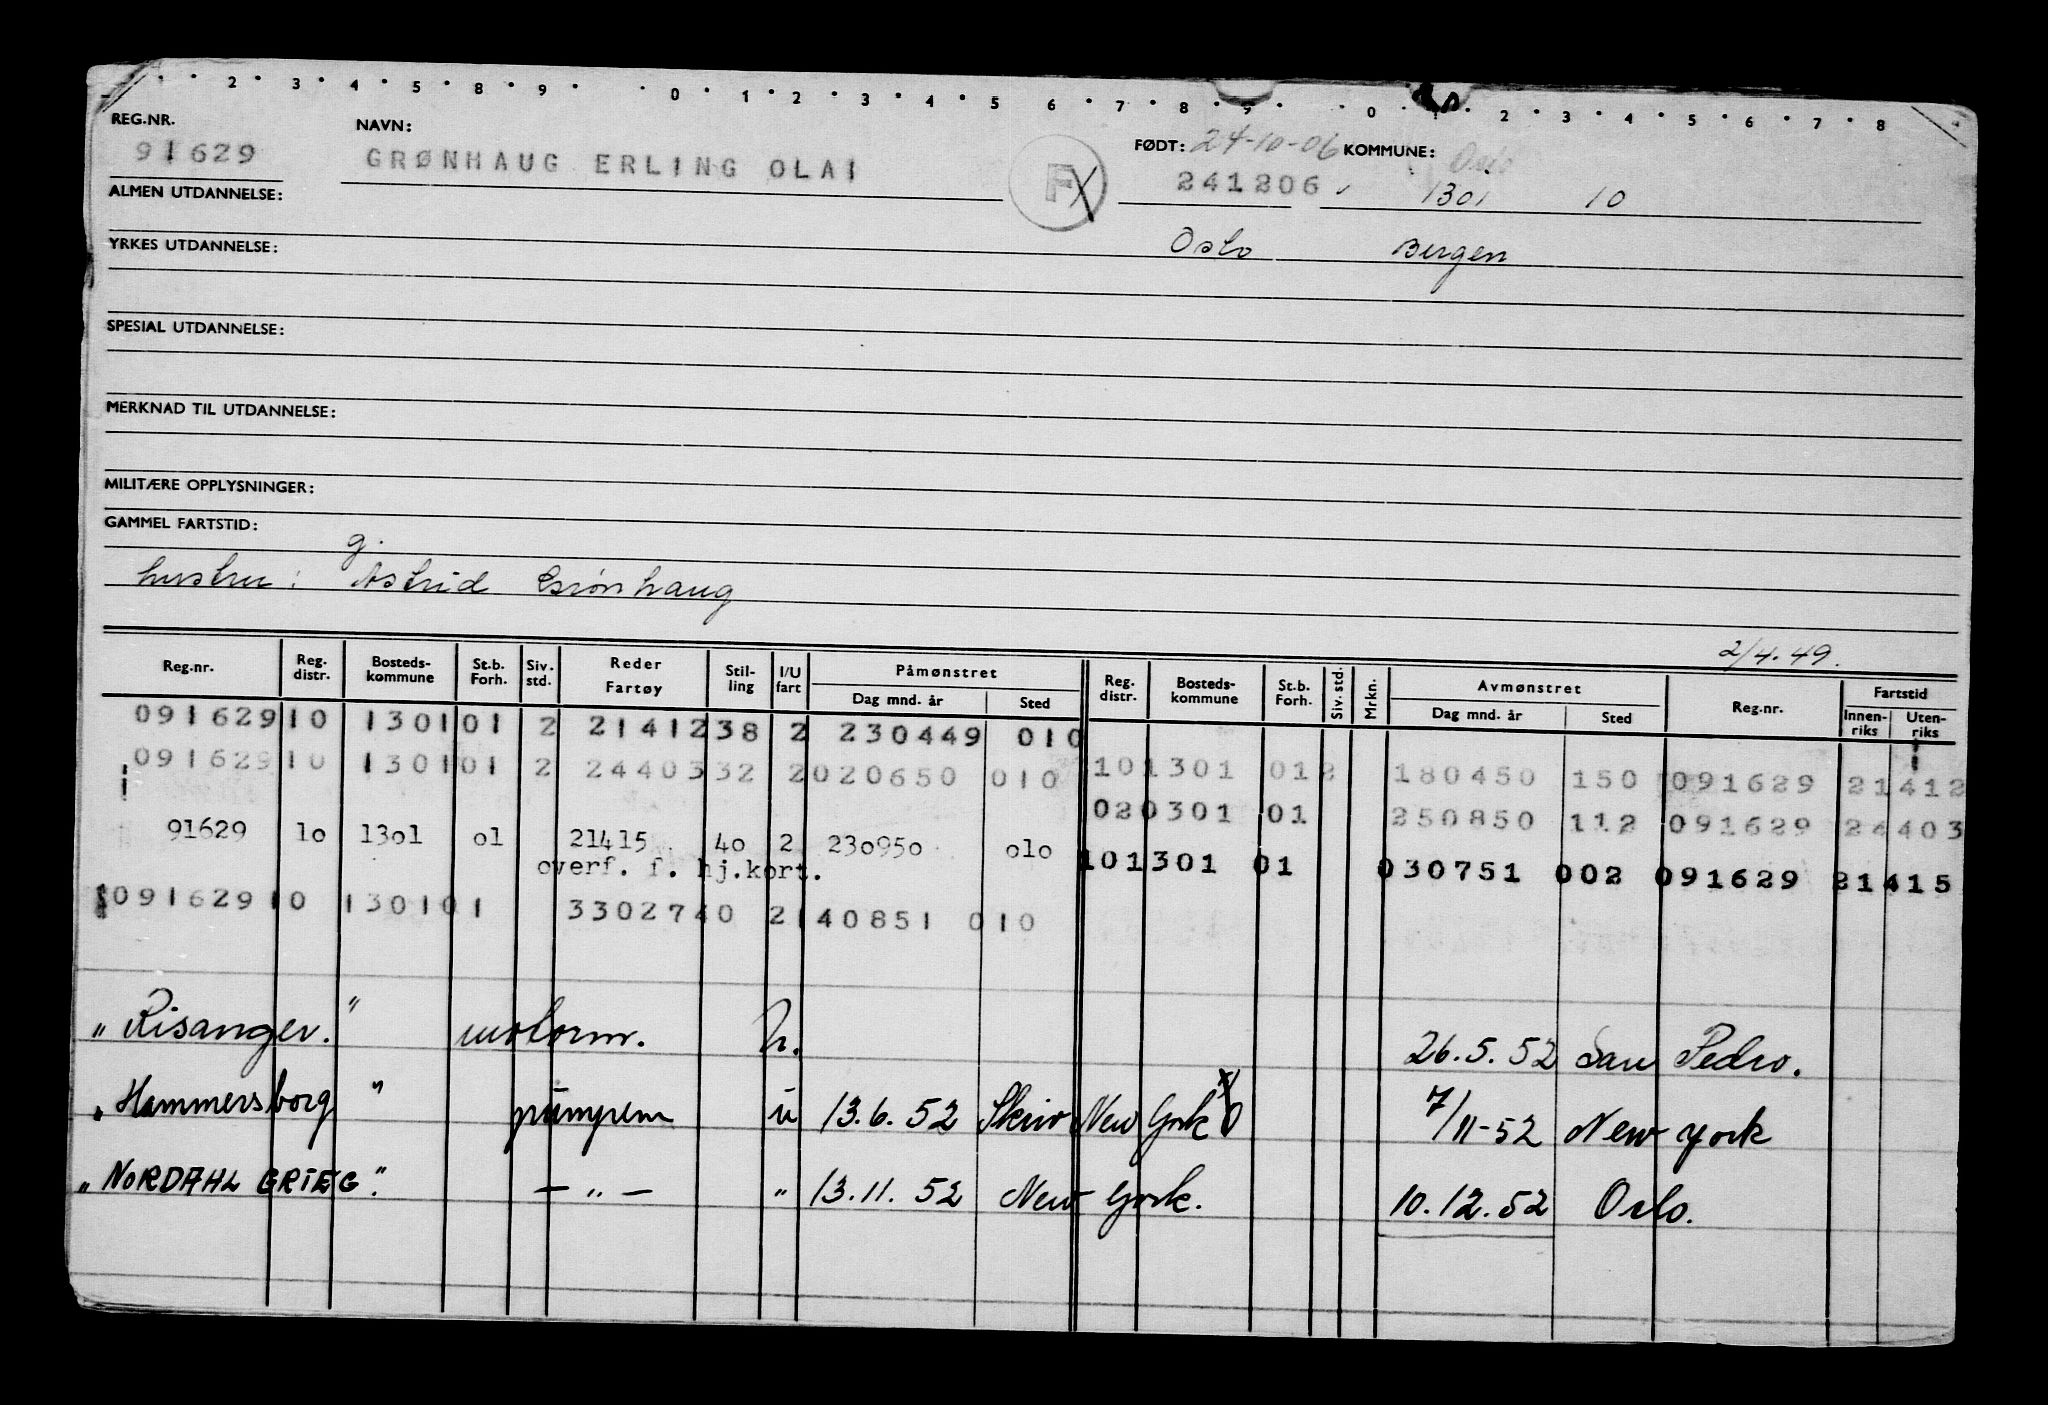 2 3 4 5 8 9 0 1 2 3 4 5 6 7 8 9 0 2 3 4 5 6 7 8
REG.NR. NAVN: FØDT: 24-10-06 KOMMUNE: Oslo
91629 GRØNHAUG ERLING OLAI F 241206 1301 10
ALMEN UTDANNELSE:
YRKES UTDANNELSE: Oslo Bergen
SPESIAL UTDANNELSE:
MERKNAD TIL UTDANNELSE:
MILITÆRE OPPLYSNINGER:
GAMMEL FARTSTID:
g.
hustru: Astrid Grønhaug
2/4.49.
Reg.nr. Reg. distr. Bosteds-kommune St.b. Forh. Siv. std. Reder Fartøy Stil-ling I/U fart Påmønstret Dag mnd. år Sted Reg. distr. Bosteds-kommune St.b. Forh. Siv. std. Mrkn. Avmønstret Dag mnd. år Sted Reg.nr. Fartstid Innen-riks Uten-riks
091629 10 1301 01 2 21412 38 2 230449 010
091629 10 1301 01 2 24403 32 2 020650 010 10 1301 01 2 180450 150 091629 21412
02 0301 01 250850 112 091629 24403
91629 10 1301 01 21415 40 2 230950 010 10 1301 01 030751 002 091629 21415
overf. f. hj.kort.
091629 10 1301 01 33027 40 2 140851 010
"Risanger." motorm. u. 26.5.52 San Pedro.
"Hammersborg" pumpem u 13.6.52 Skriv New York 7/11-52 New York
"NORDAHL GRIEG." — " — " 13.11.52 New York. 10.12.52 Oslo.